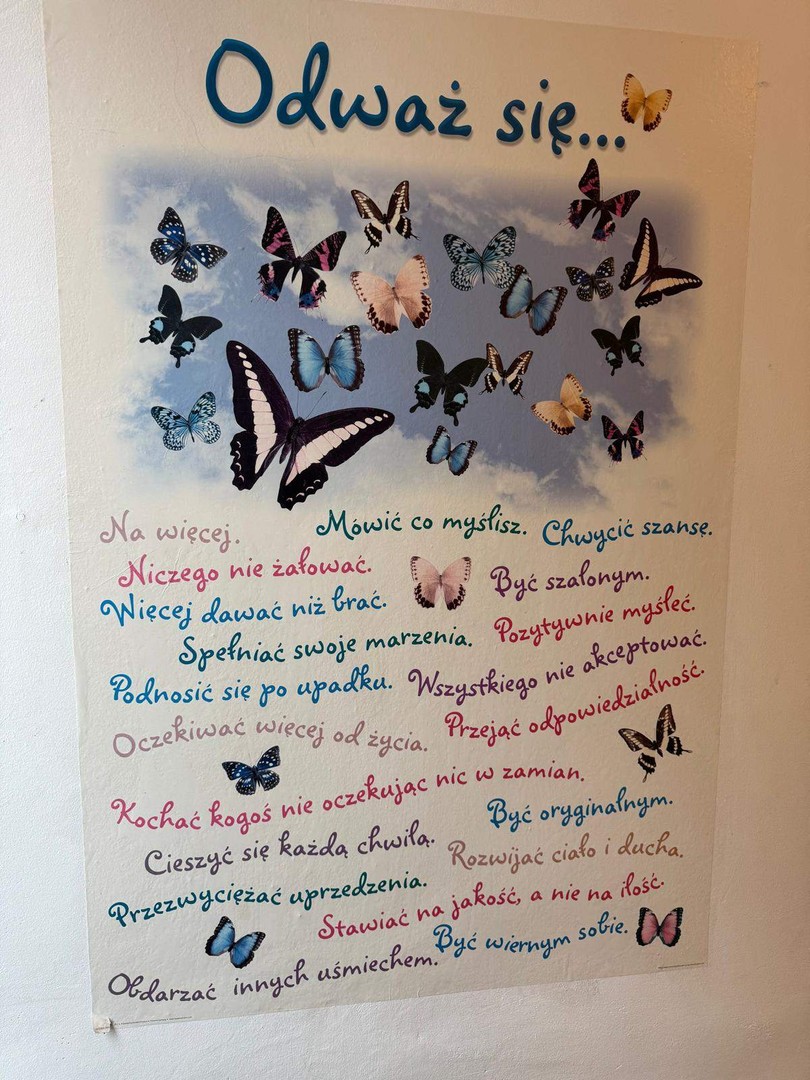 Odważ się...
Na więcej.
Mówić co myślisz.
Chwycić szansę.
Niczego nie żałować.
Być szalonym.
Więcej dawać niż brać.
Pozytywnie myśleć.
Spełniać swoje marzenia.
Wszystkiego nie akceptować.
Podnosić się po upadku.
Przejąć odpowiedzialność.
Oczekiwać więcej od życia.
Kochać kogoś nie oczekując nic w zamian.
Być oryginalnym.
Cieszyć się każdą chwilą.
Rozwijać ciało i ducha.
Przezwyciężać uprzedzenia.
Stawiać na jakość, a nie na ilość.
Być wiernym sobie.
Obdarzać innych uśmiechem.